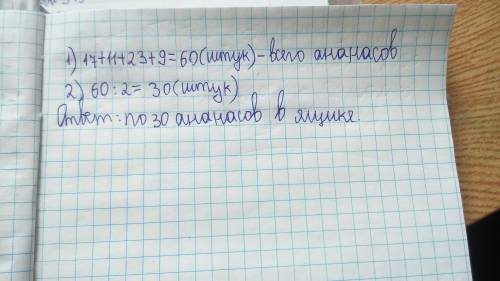 1) 17+11+23+9=60(штук)-всего ананасов
2) 60:2= 30(штук)
Ответ: по 30 ананасов в ящике.